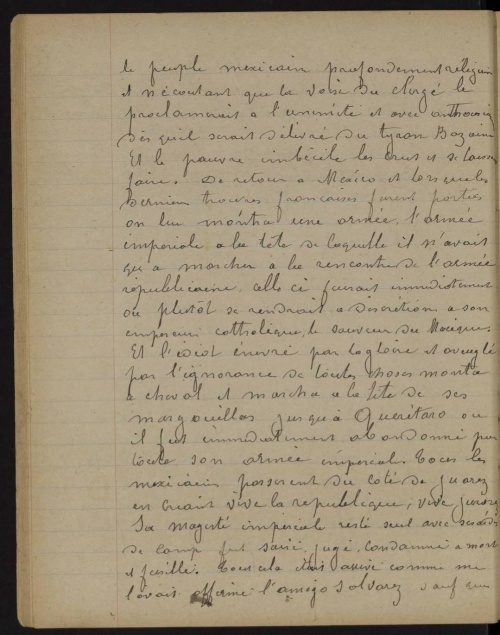 le peuple mexicain profondement religieu
et n'écoutant que la voix du clergé le
proclamerait a l'unimité et avec enthousia
dès quil serait délivré du tyran Bazaine
Et le pauvre imbécile les crut et se laissa
faire. De retour a Mexico et lorsque les
derniers trouves françaises furent parties
on lui montra une armée, l'armée
imperiale a la tête de laquelle il n'avait
qu a marcher à la rencontre de l'armée
republicaine, celle ci fuirait immediatement
ou plutôt se rendrait a discrétion a son
empereur catholique, le sauveur du Mexique.
Et l'idiot énivré par la gloire et aveuglé
par l'ignorance de toutes choses monta
a cheval et marcha a la tête de ses
margouillas jusqu'à Quérétaro ou
il fut immediatement abandonné par
toute son armée impérial. Tous les
mexicains passerent du coté de Juarez
en criant vive la republique, vive Juarez
Sa magesté imperiale resté seul avec
de camp fut saisi, jugé, condamné a mort
et fusillé. Tout cela était arrivé comme me
l'avait affirmé l'amigo Salvarez sauf que